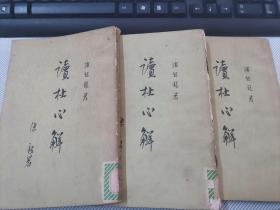 浦起龍著
讀杜心解
浦起龍著
讀杜心解
浦起龍著
讀杜心解